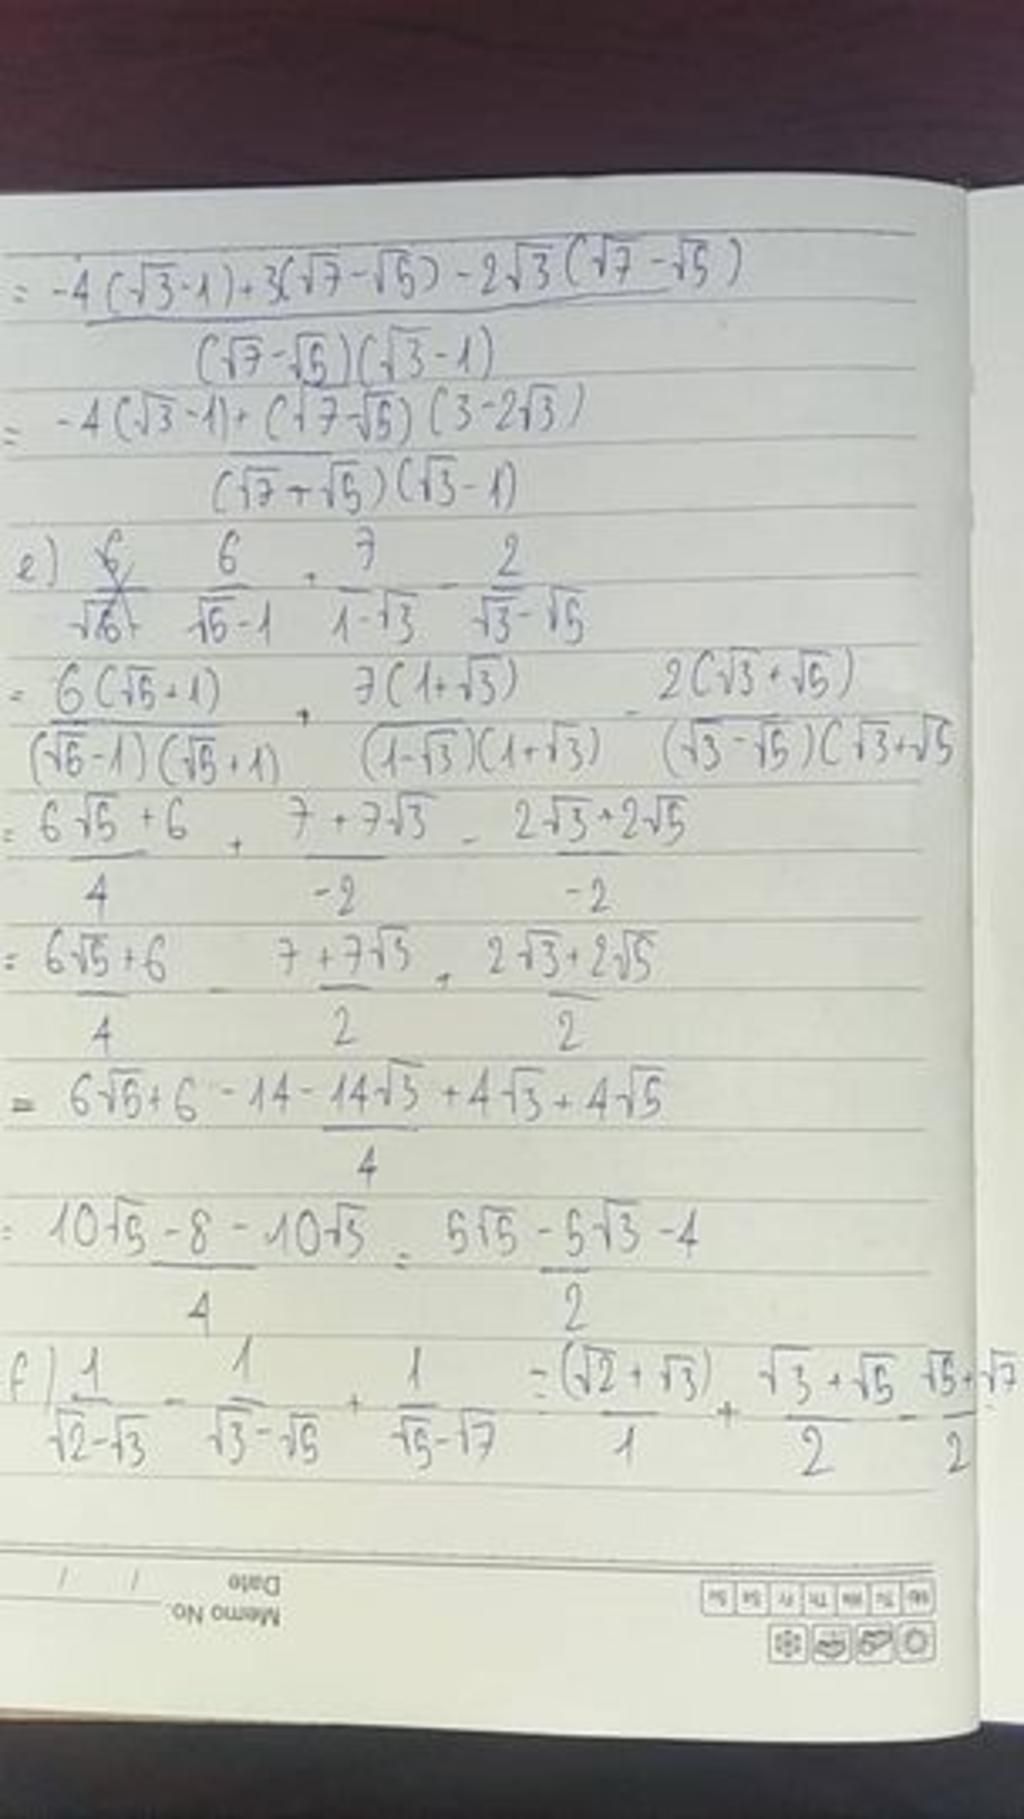 = -4(√3-1)+3(√7-√5)-2√3(√7-√5)
(√7-√5)(√3-1)
= -4(√3-1)+(√7-√5)(3-2√3)
(√7+√5)(√3-1)
e) 6/(√5-1) + 7/(1-√3) - 2/(√3-√5)
= 6(√5+1)/((√5-1)(√5+1)) + 7(1+√3)/((1-√3)(1+√3)) - 2(√3+√5)/((√3-√5)(√3+√5
= (6√5+6)/4 + (7+7√3)/-2 - (2√3+2√5)/-2
= (6√5+6)/4 - (7+7√3)/2 + (2√3+2√5)/2
= (6√5+6-14-14√3+4√3+4√5)/4
= (10√5-8-10√3)/4 = (5√5-5√3-4)/2
f) 1/(√2-√3) - 1/(√3-√5) + 1/(√5-√7) = -(√2+√3)/1 + (√3+√5)/2 - (√5+√7)/2
Memo No.
Date / /
Mo Tu We Th Fr Sa Su